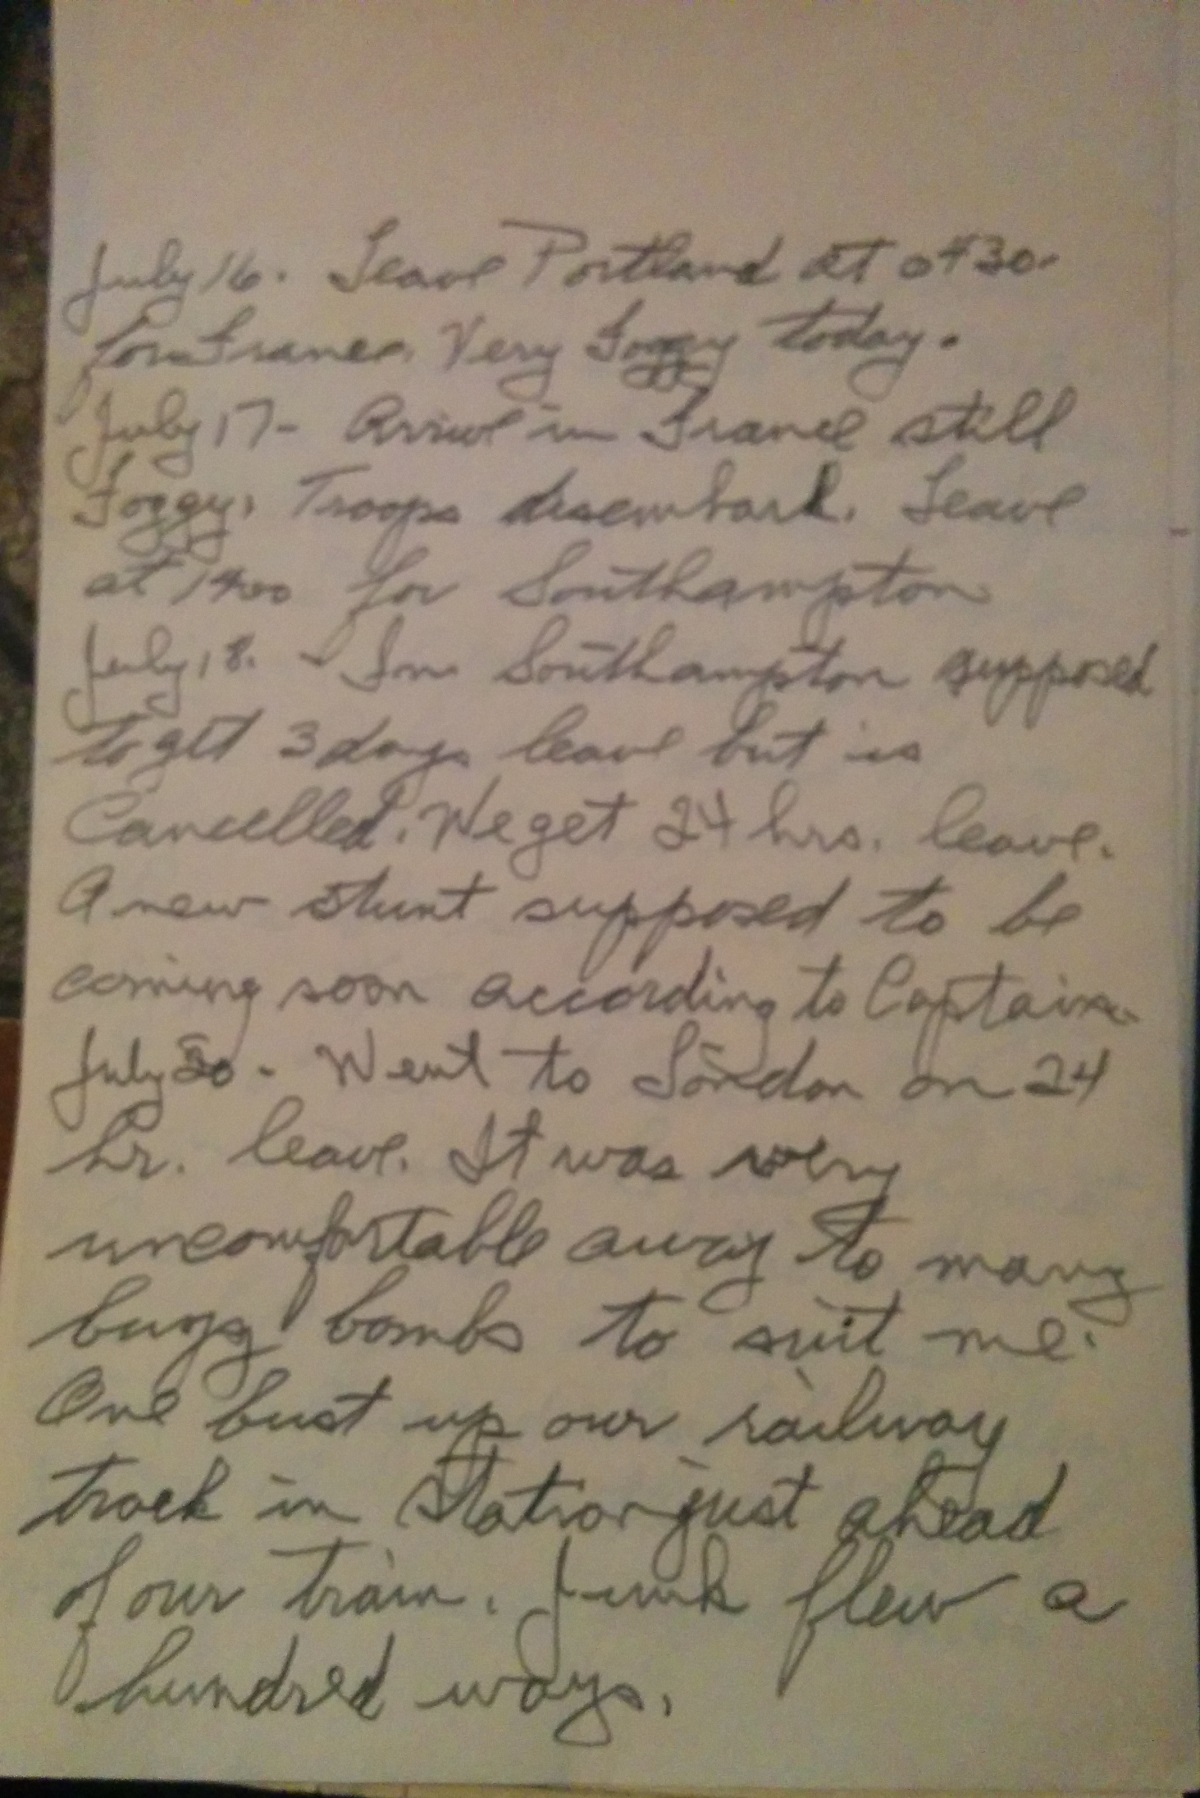 July 16. Leave Portland at 0430.
for France. Very Foggy today.
July 17- Arrive in France still
Foggy. Troops disembark. Leave
at 1400 for Southampton
July 18. - In Southampton supposed
to get 3 days leave but is
Cancelled. We get 24 hrs. leave.
A new stunt supposed to be
coming soon according to Captain.
July 20. Went to London on 24
hr. leave. It was very
uncomfortable away to many
buzz bombs to suit me.
One bust up our railway
track in Station just ahead
of our train. Junk flew a
hundred ways.